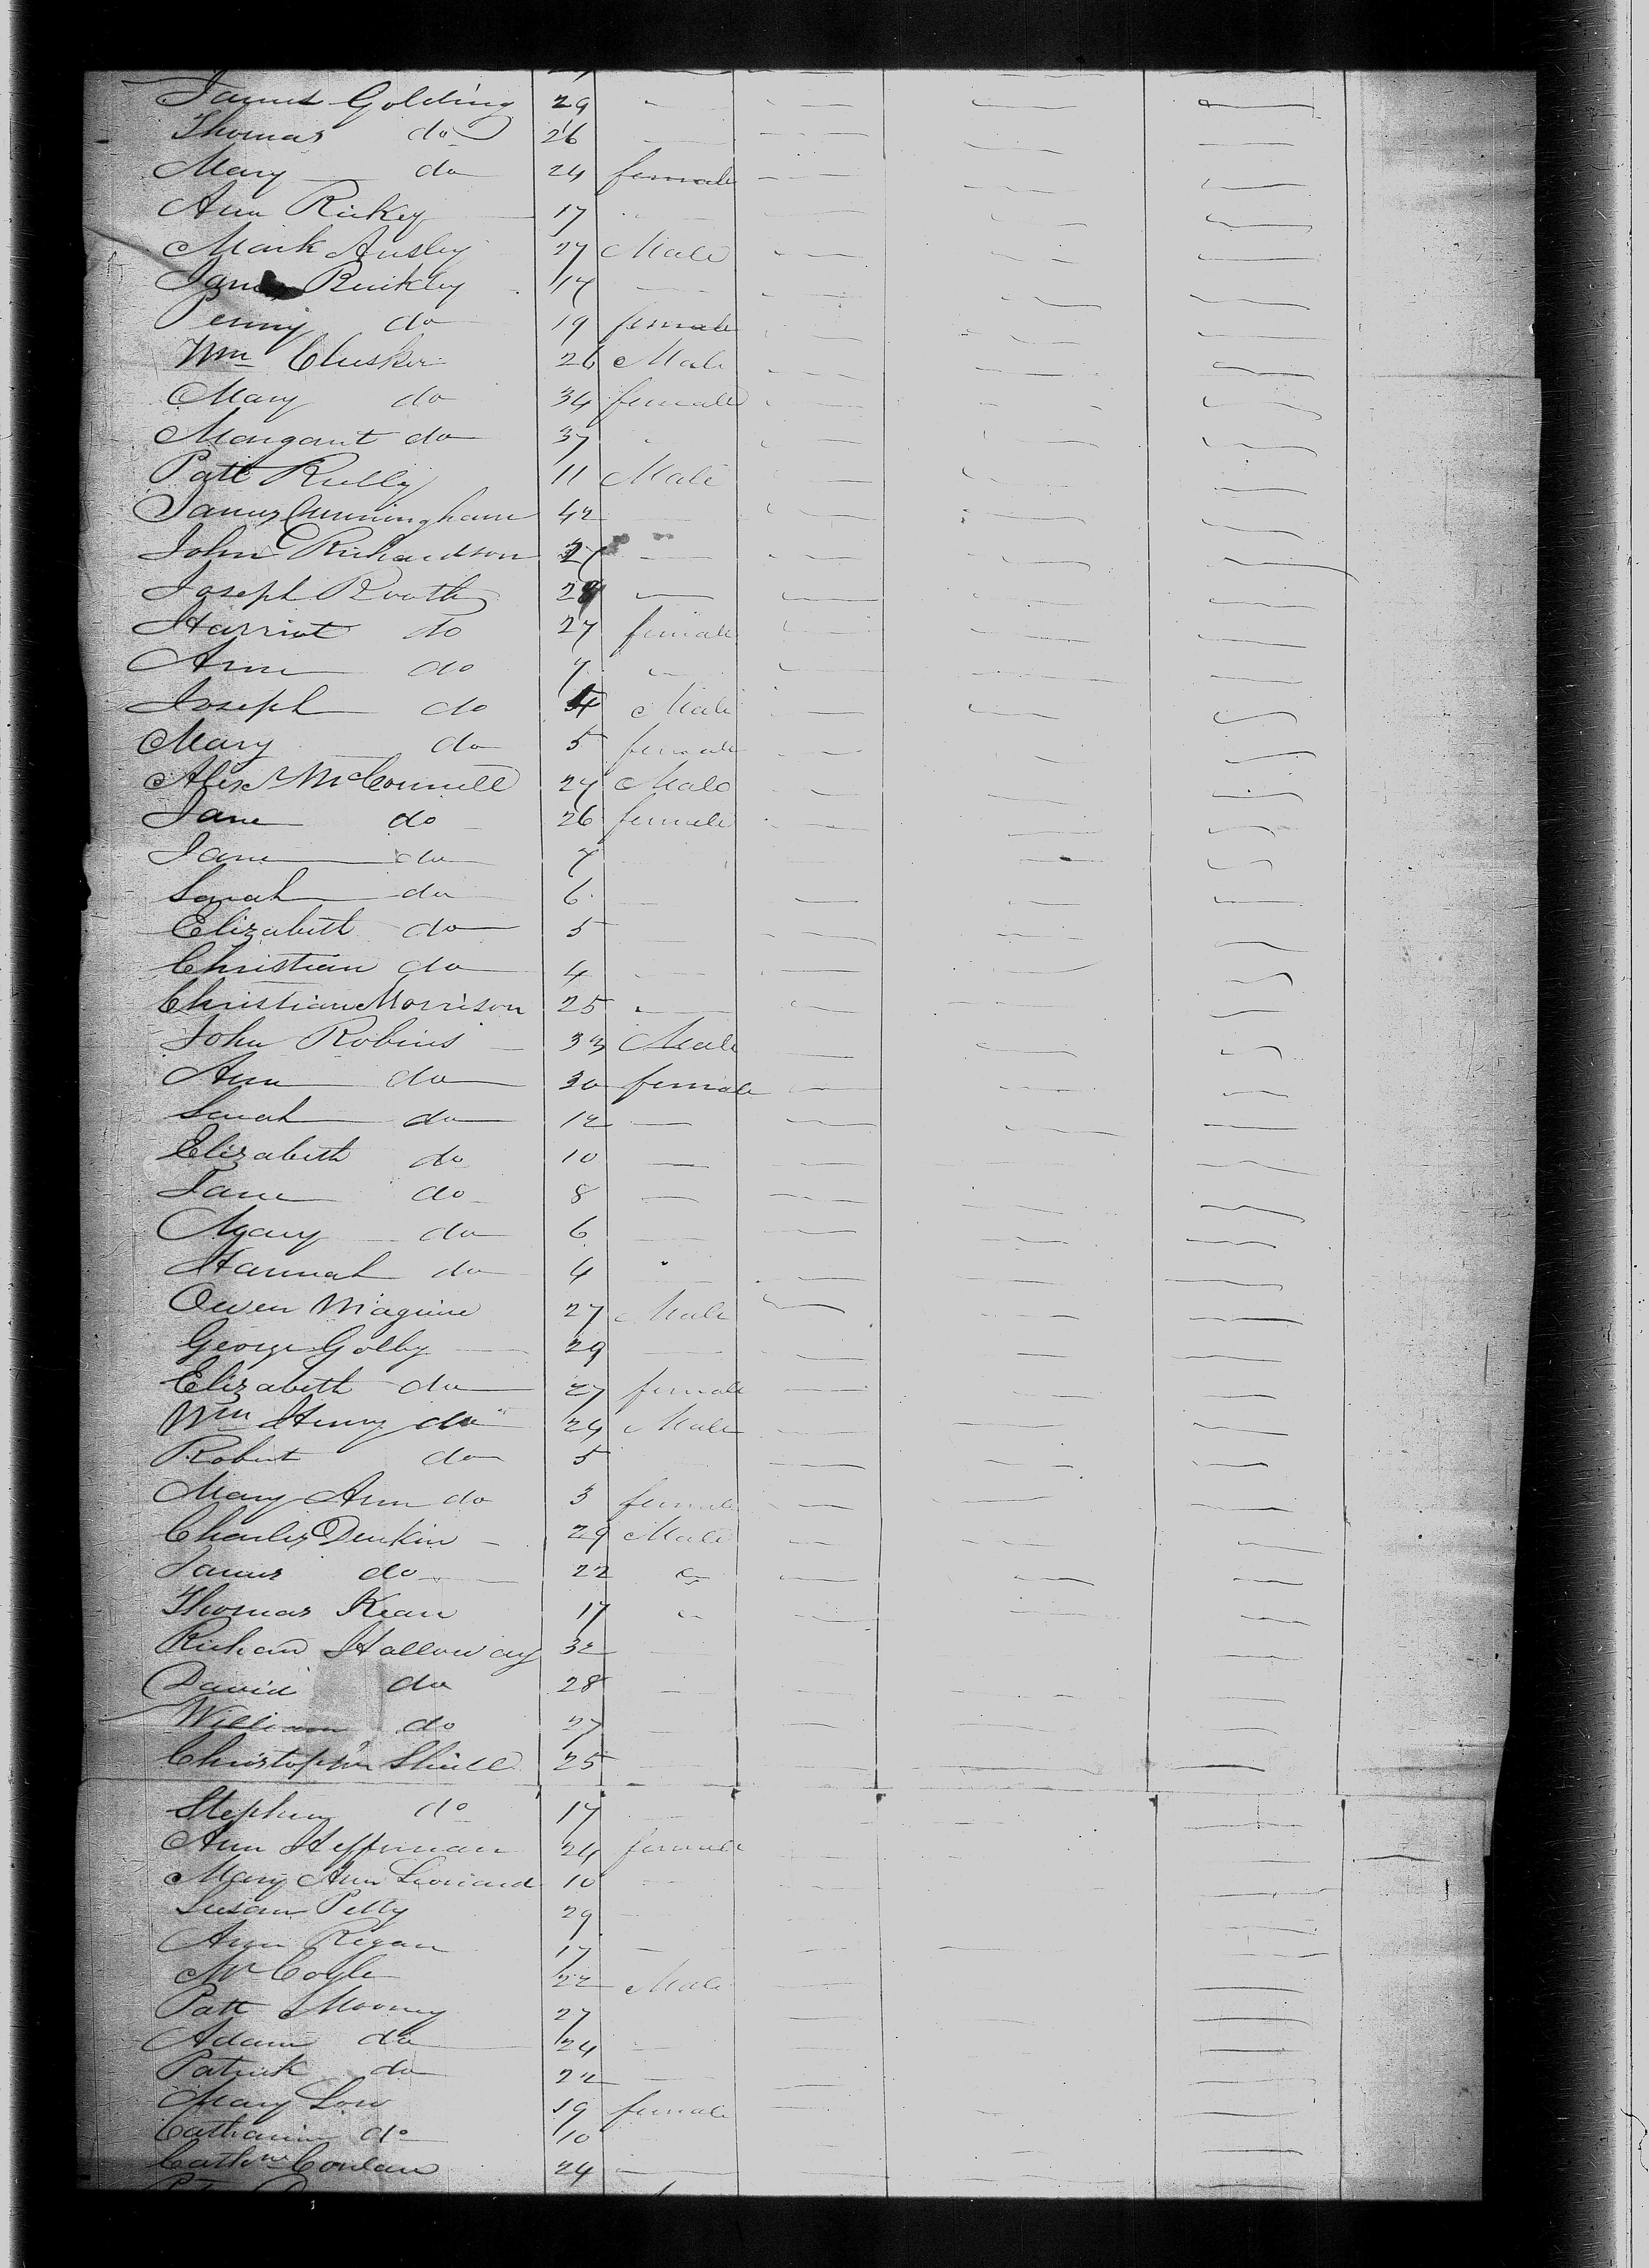 James Golding 29
Thomas do 26
Mary do 24 female
Ann Rickey 17
Mark Ansley 27 Male
James Buckley 17
Penny do 19 female
Wm Clusker 26 Male
Mary do 34 female
Margaret do 37
Patt Reilly 11 Male
James Cunningham 42
John Richardson 27
Joseph Routh 28
Harriot do 27 female
Ann do 7
Joseph do 4 Male
Mary do 5 female
Alex McConnell 27 Male
Jane do 26 female
Jane do 7
Sarah do 6
Elizabeth do 5
Christian do 4
Christian Morrison 25
John Robins 33 Male
Ann do 30 female
Sarah do 12
Elizabeth do 10
Jane do 8
Mary do 6
Hannah do 4
Owen Maguire 27 Male
George Golby 29
Elizabeth do 27 female
Wm Henry do 24 Male
Robert do 5
Mary Ann do 3 female
Charles Denkin 29 Male
James do 22
Thomas Kean 17
Richard Holloway 32
David do 28
William do 27
Christopher Shiell 25
Stephen do 17
Ann Heffernan 24 female
Mary Ann Leonard 10
Susan Petty 29
Ann Regan 17
Mr Coyle 22 Male
Patt Mooney 27
Adam do 24
Patrick do 22
Mary Low 19 female
Catharine do 10
Cathne Conlan 24